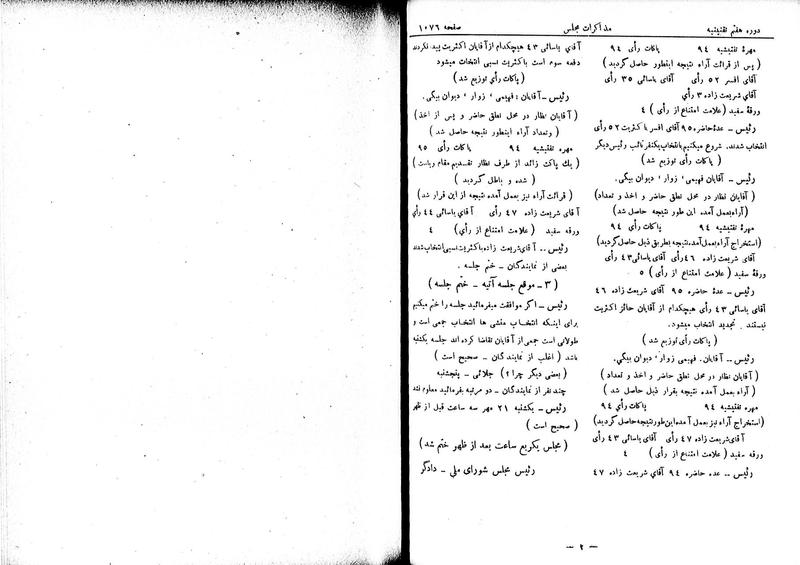 دوره هفتم تقنینیه
مذاکرات مجلس
صفحه ۱۰۷۶
مهره تفتیشیه ۹۴ پاکات رأی ۹۴
( پس از قرائت آراء نتیجه اینطور حاصل گردید )
آقای افسر ۵۲ رأی آقای یاسائی ۳۵ رأی
آقای شریعت زاده ۳ رأی
ورقه سفید (علامت امتناع از رأی ) ۴
رئیس – عدهٔ حاضره ۹۵ آقای افسر باکثریت ۵۲ رأی
انتخاب شدند. شروع میکنیم بانتخاب یکنفر نائب رئیس دیگر
( پاکات رأی توزیع شد )
رئیس – آقایان فهیمی ٬ زوار ٬ دیوان بیگی.
(آقایان نظار در محل نطق حاضر و اخذ و تعداد)
(آراء بعمل آمده این طور نتیجه حاصل شد)
مهرهٔ تفتیشیه ۹۴ پاکات رأی ۹۴
(استخراج آراء بعمل آمده نتیجه بطریق ذیل حاصل گردید)
آقای شریعت زاده ۴۶ رأی آقای یاسائی ۴۳ رأی
ورقه سفید ( علامت امتناع از رأی ) ۵
رئیس – عدهٔ حاضره ۹۵ آقای شریعت زاده ۴۶
آقای یاسائی ۴۳ رأی هیچکدام از آقایان حائز اکثریت
نیستند . تجدید انتخاب میشود.
( پاکات رأی توزیع شد )
رئیس .. آقایان. فهیمی زوار٬ دیوان بیگی.
(آقایان نظار در محل حاضر و اخذ و تعداد )
( آراء بعمل آمده نتیجه بقرار ذیل حاصل شد )
مهره تفتیشیه ۹۴ پاکات رأی ۹۴
(استخراج آراء نیز بعمل آمده این طور نتیجه حاصل گردید)
آقای شریعت زاده ۴۷ رأی آقای یاسائی ۴۳ رأی
ورقه سفید ( علامت امتناع از رأی ) ۴
رئیس .. عده حاضره ۹۴ آقای شریعت زاده ۴۷
آقای یاسائی ۴۳ هیچکدام از آقایان اکثریت پیدا نکردند
دفعه سوم است باکثریت نسبی انتخاب میشود
( پاکات رأی توزیع شد )
رئیس – آقایان : فهیمی ٬ زوار ٬ دیوان بیگی.
( آقایان نظار در محل نطق حاضر و پس از اخذ )
( وتعداد آراء اینطور نتیجه حاصل شد )
مهره تفتیشیه ۹۴ پاکات رأی ۹۵
( یك پاکت زائد از طرف نظار تقدیم مقام ریاست )
( شده و باطل گردید )
( قرائت آراء نیز بعمل آمده نتیجه از این قرار شد )
آقای شریعت زاده ۴۷ رأی آقای یاسائی ۴۴ رأی
ورقه سفید ( علامت امتناع از رأی ) ۴
رئیس .. آقای شریعت زاده باکثریت نسبی انتخاب شدند
بعضی از نمایندگان – ختم جلسه .
( ۳ – موقع جلسه آتیه – ختم جلسه )
رئیس – اگر موافقت میفرمائید جلسه را ختم میکنیم
برای اینکه انتخاب منشی ها انتخاب جمعی است و
طولانی است جمعی از آقایان تقاضا کرده اند جلسه یکشنبه
باشد ( اغلب از نمایندگان – صحیح است )
( بعضی دیگر چرا ؟ ) جلائی – پنجشنبه
چند نفر از نمایندگان – دو مرتبه بفرمائید معلوم نشد
رئیس – یکشنبه ۲۱ مهر سه ساعت قبل از ظهر
( صحیح است )
( مجلس یکربع ساعت بعد از ظهر ختم شد )
رئیس مجلس شورای ملی – دادگر
– ۲ –